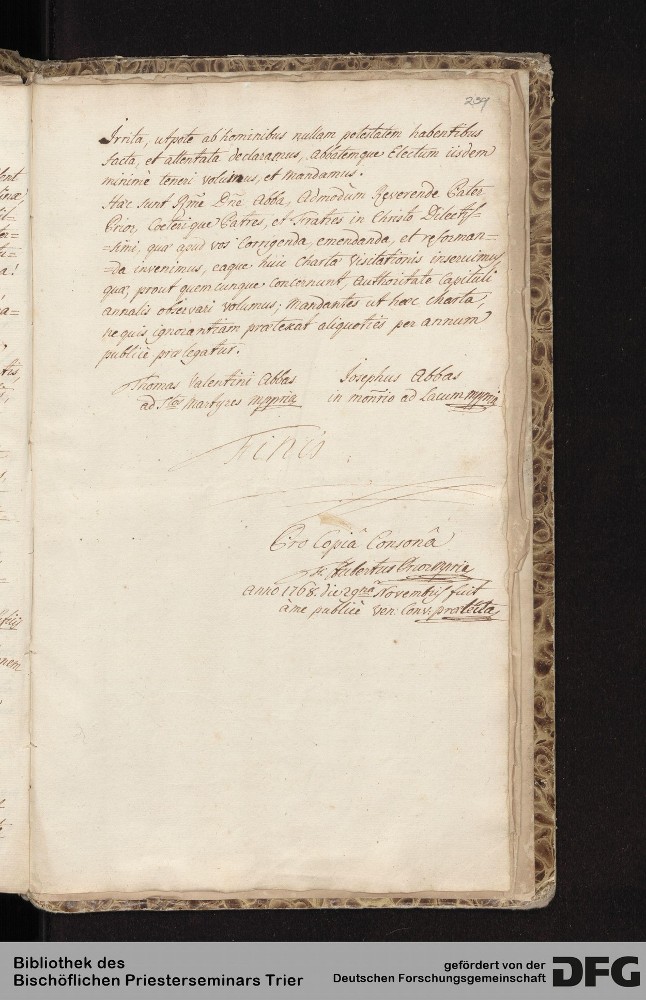 239
Irrita, utpote ab hominibus nullam potestatem habentibus
facta, et attentata declaramus, Abbatemque Electum iisdem
minimè teneri volumus, et Mandamus.
Hæc sunt Rme Dne Abba, Admodùm Reverende Pater
Prior, Cœterique Patres, et Fratres in Christo Dilectis-
=simi, quæ apud vos Corrigenda, emendanda, et reforman-
=da invenimus, eaque huic Chartæ Visitationis inseruimus
quæ, prout quemcunque concernunt, Authoritate Capituli
annalis observari volumus; Mandantes ut hæc charta,
ne quis ignorantiam prætexat aliquoties per annum
publicè prælegatur.
Thomas Valentini Abbas Josephus Abbas
ad Stos Martyres mppria in monrio ad Lacum mppria
Finis
Pro Copiâ Consonâ
Fr. Hubertus Prior mppria
anno 1768. die 2 Novembris fuit
a me publicè Ven: Conv: prælecta
Bibliothek des
Bischöflichen Priesterseminars Trier
gefördert von der
Deutschen Forschungsgemeinschaft
DFG